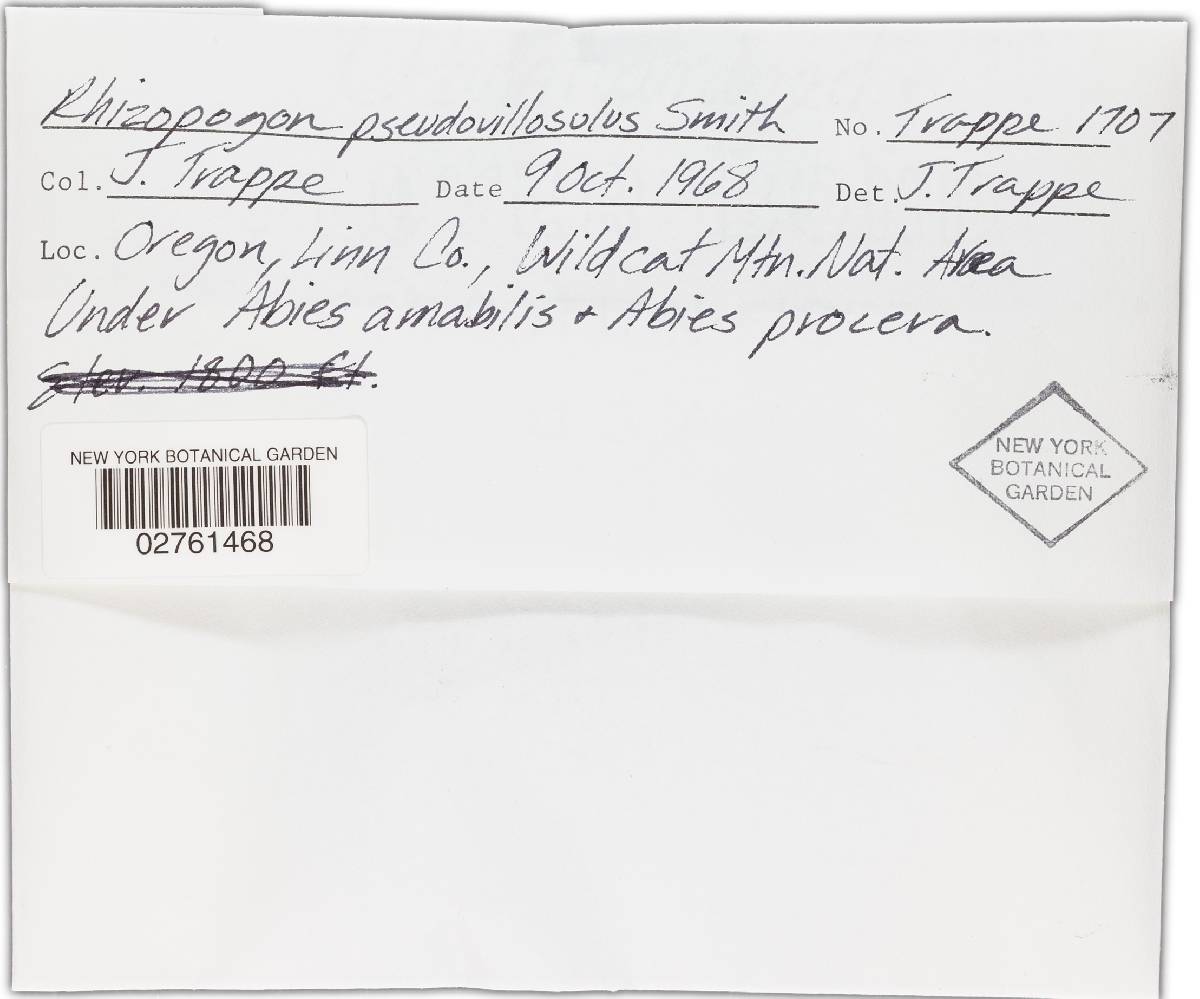 Rhizopogon pseudovillosulus Smith No. Trappe 1707
Col. J. Trappe Date 9 Oct. 1968 Det. J. Trappe
Loc. Oregon, Linn Co., Wildcat Mtn. Nat. Area
Under Abies amabilis + Abies procera.
Elev. 1800 ft.
NEW YORK BOTANICAL GARDEN
02761468
NEW YORK
BOTANICAL
GARDEN